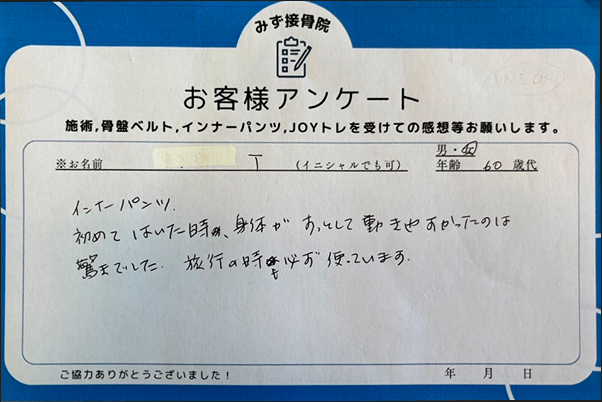 みず接骨院
お客様アンケート
施術,骨盤ベルト,インナーパンツ,JOYトレを受けての感想等お願いします。
男・女
※お名前 T (イニシャルでも可) 年齢 60 歳代
インナーパンツ.
初めてはいた時、身体がすっとして動きやすかったのは
驚きでした. 旅行の時も必ず使っています.
ご協力ありがとうございました！ 年 月 日